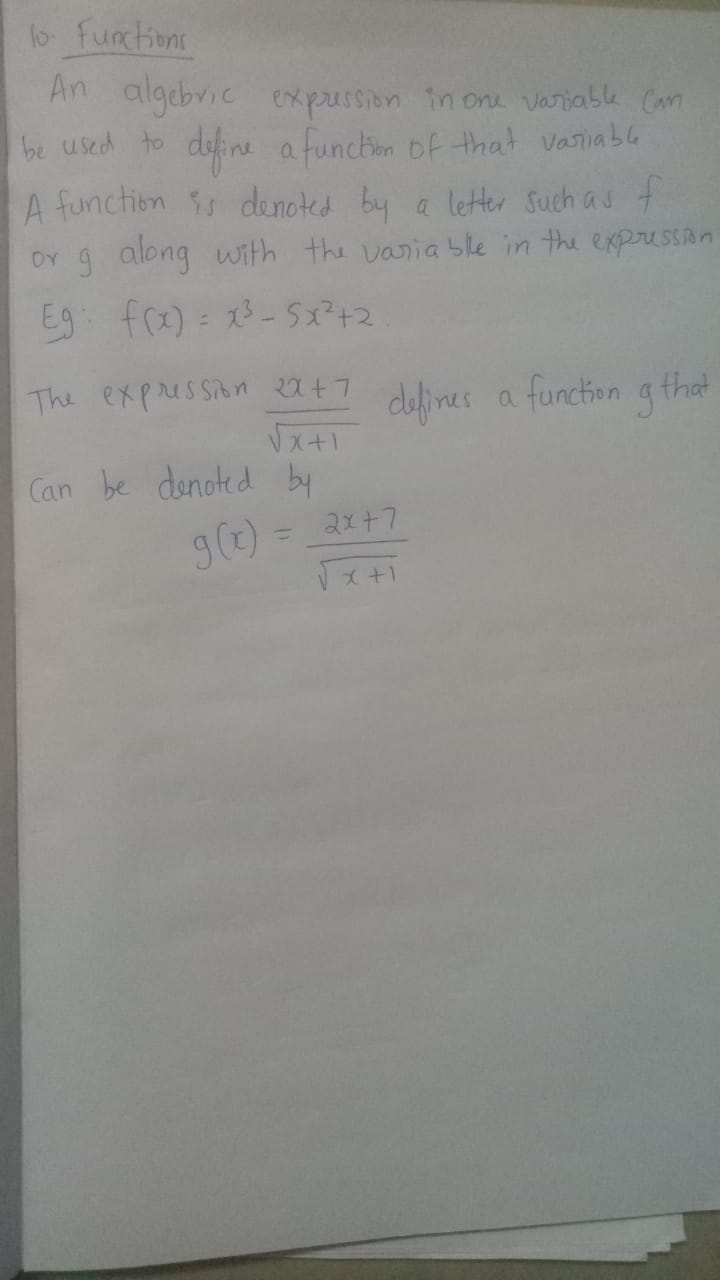 10. Functions
An algebric expression in one variable can
be used to define a function of that variable
A function is denoted by a letter such as f
or g along with the variable in the expression
Eg: f(x) = x³ - 5x² + 2.
The expression (2x+7)/√(x+1) defines a function g that
Can be denoted by
g(x) = (2x+7)/√(x+1)